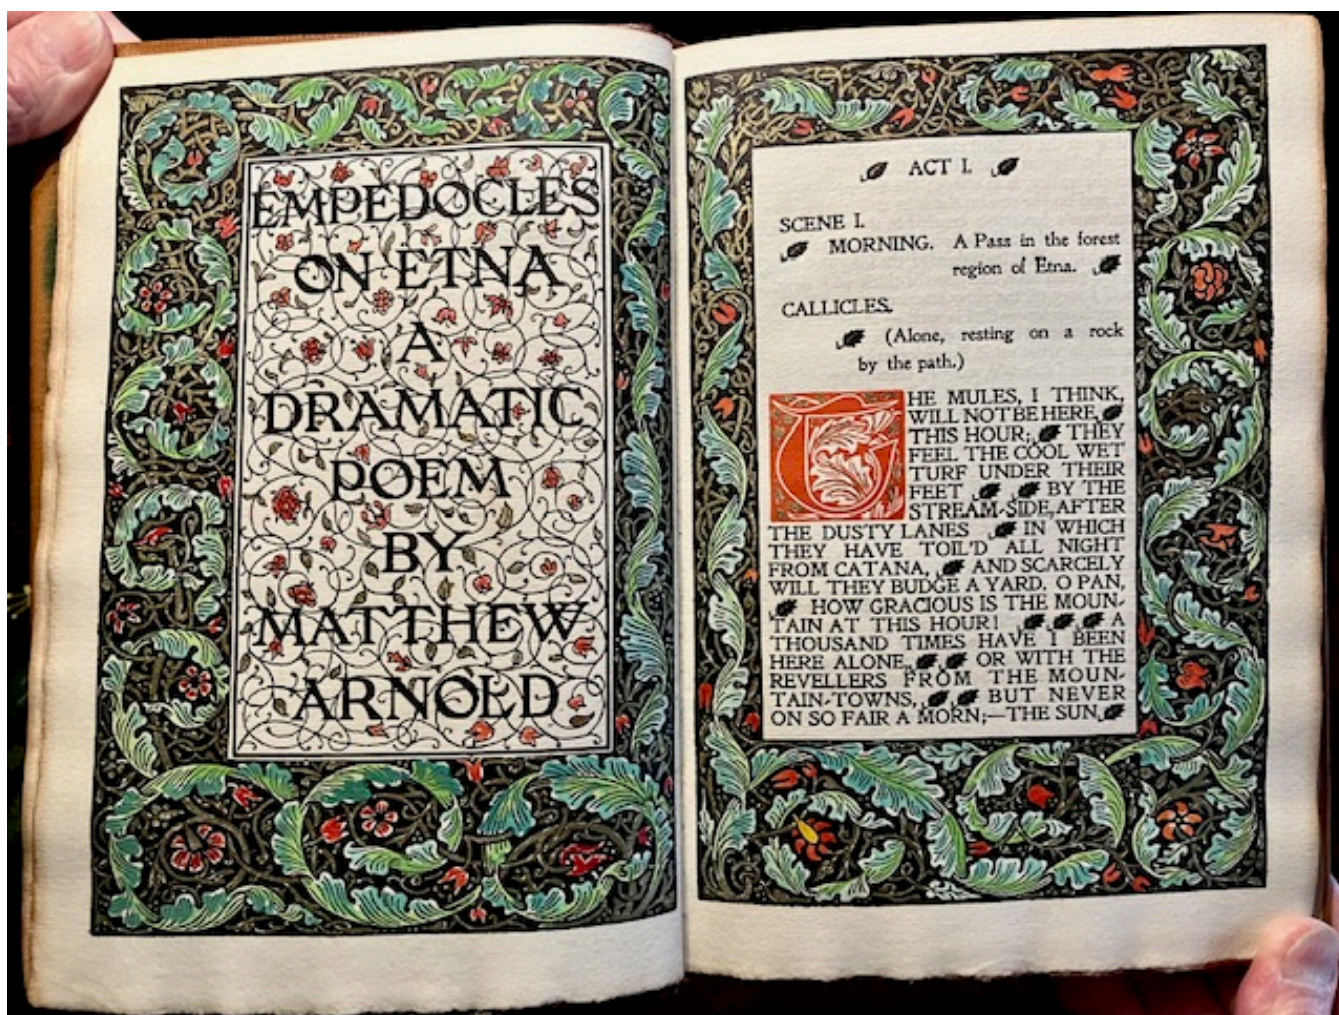 EMPEDOCLES
ON ETNA
A
DRAMATIC
POEM
BY
MATTHEW
ARNOLD
ACT I.
SCENE I.
MORNING. A Pass in the forest
region of Etna.
CALLICLES.
(Alone, resting on a rock
by the path.)
THE MULES, I THINK,
WILL NOT BE HERE
THIS HOUR; THEY
FEEL THE COOL WET
TURF UNDER THEIR
FEET BY THE
STREAM-SIDE, AFTER
THE DUSTY LANES IN WHICH
THEY HAVE TOIL'D ALL NIGHT
FROM CATANA, AND SCARCELY
WILL THEY BUDGE A YARD. O PAN,
HOW GRACIOUS IS THE MOUN-
TAIN AT THIS HOUR! A
THOUSAND TIMES HAVE I BEEN
HERE ALONE, OR WITH THE
REVELLERS FROM THE MOUN-
TAIN-TOWNS, BUT NEVER
ON SO FAIR A MORN;—THE SUN